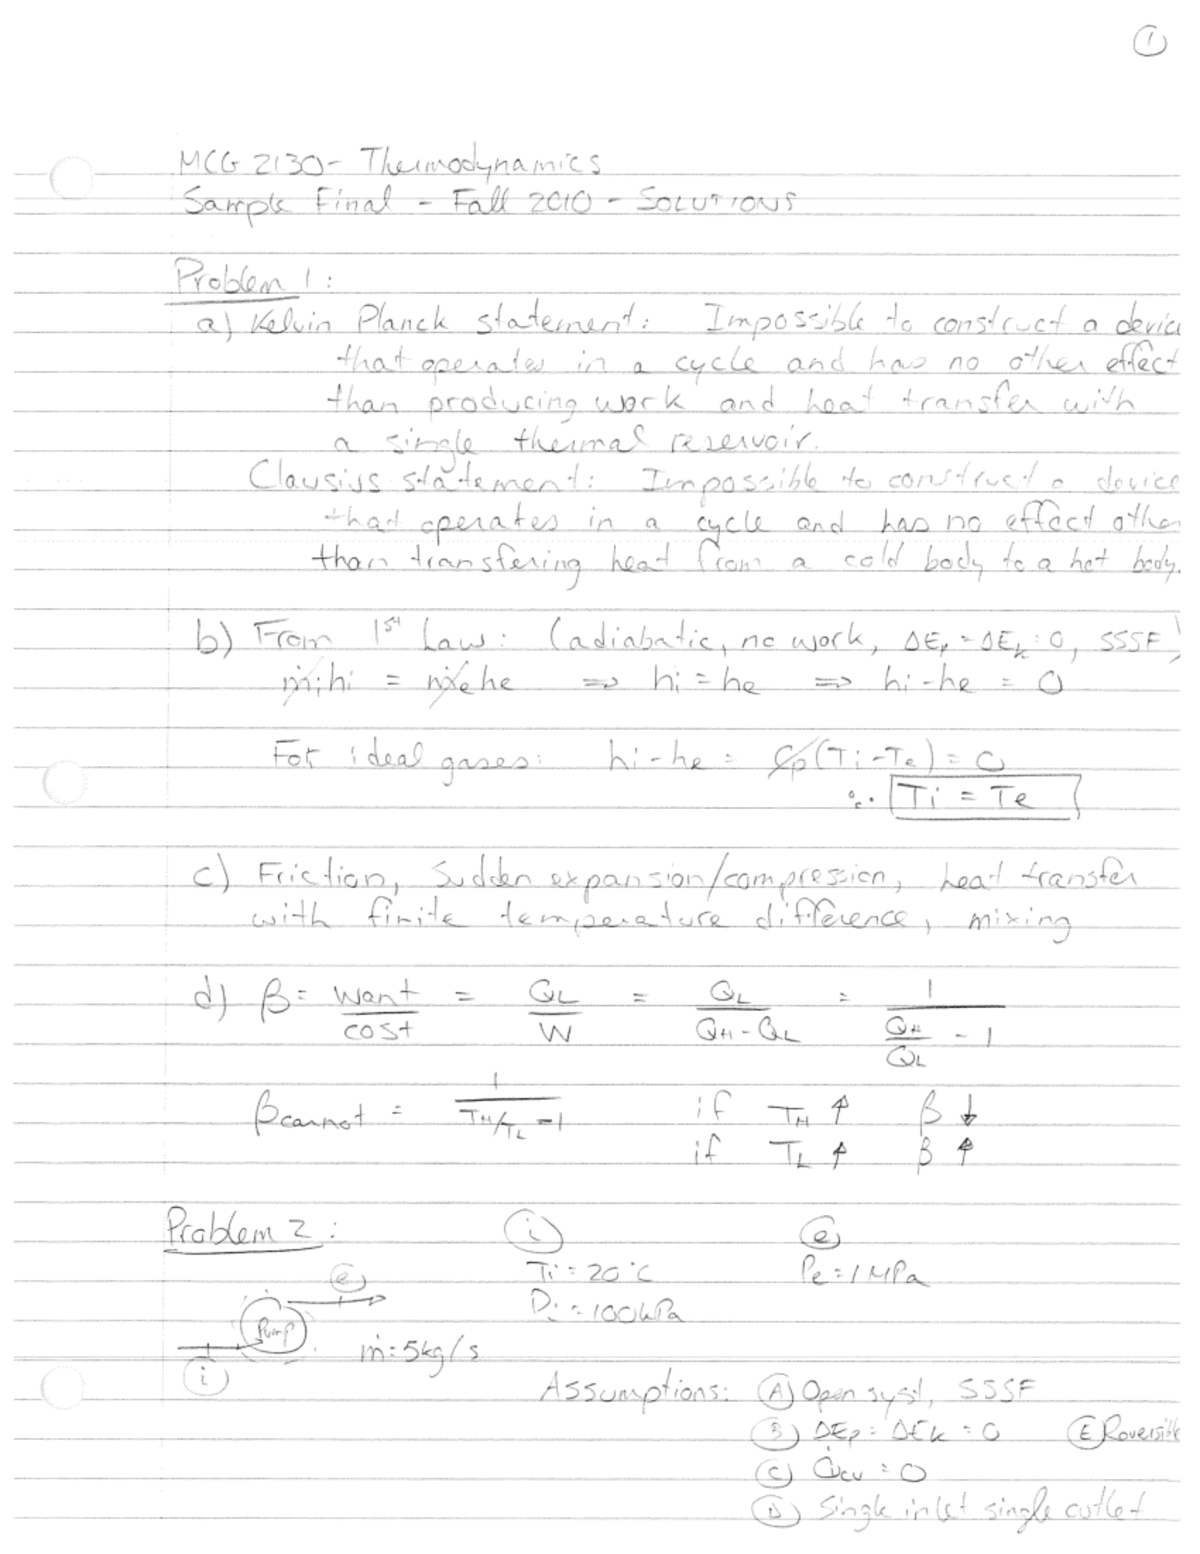 ①
MCG 2130 - Thermodynamics
Sample Final - Fall 2010 - SOLUTIONS
Problem 1:
a) Kelvin Planck statement: Impossible to construct a device
that operates in a cycle and has no other effect
than producing work and heat transfer with
a single thermal reservoir.
Clausius statement: Impossible to construct a device
that operates in a cycle and has no effect other
than transfering heat from a cold body to a hot body.
b) From 1st Law: (adiabatic, no work, ΔEp = ΔEk = 0, SSSF)
ṁihi = ṁehe ⇒ hi = he ⇒ hi - he = 0
For ideal gases: hi - he = Cp(Ti - Te) = 0
∴ Ti = Te
c) Friction, Sudden expansion/compression, heat transfer
with finite temperature difference, mixing
d) β = want/cost = QL/W = QL/(QH - QL) = 1/(QH/QL - 1)
βcarnot = 1/(TH/TL - 1) if TH ↑ β ↓
if TL ↑ β ↑
Problem 2: ⓘ ⓔ
Ti = 20°C Pe = 1 MPa
ⓔ
Pi = 100kPa
Pump
ṁ = 5kg/s
ⓘ
Assumptions: Ⓐ Open syst, SSSF
Ⓑ ΔEp = ΔEk = 0 Ⓔ Reversible
Ⓒ Q̇cv = 0
Ⓓ Single inlet single outlet